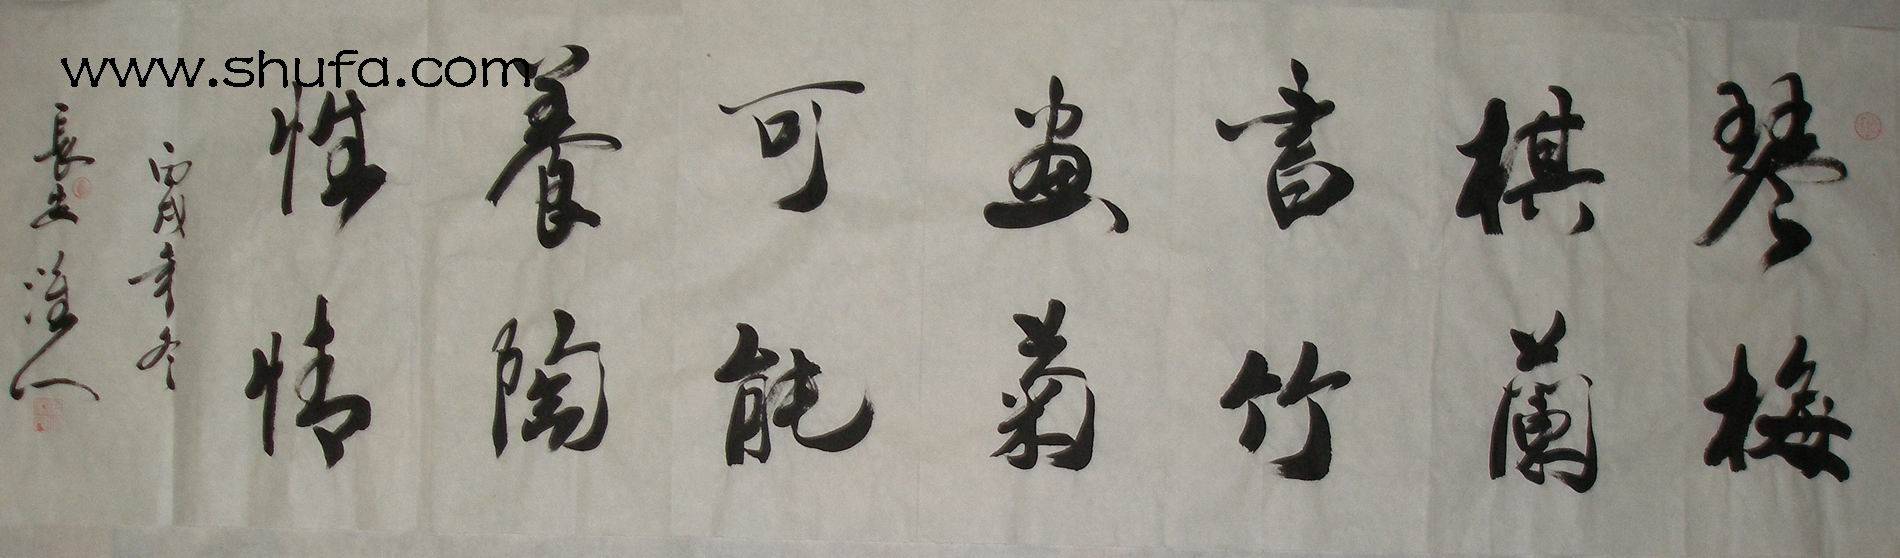 www.shufa.com
琴棋書畫可養性
梅蘭竹菊能陶情
丙戌年冬
長安淮人